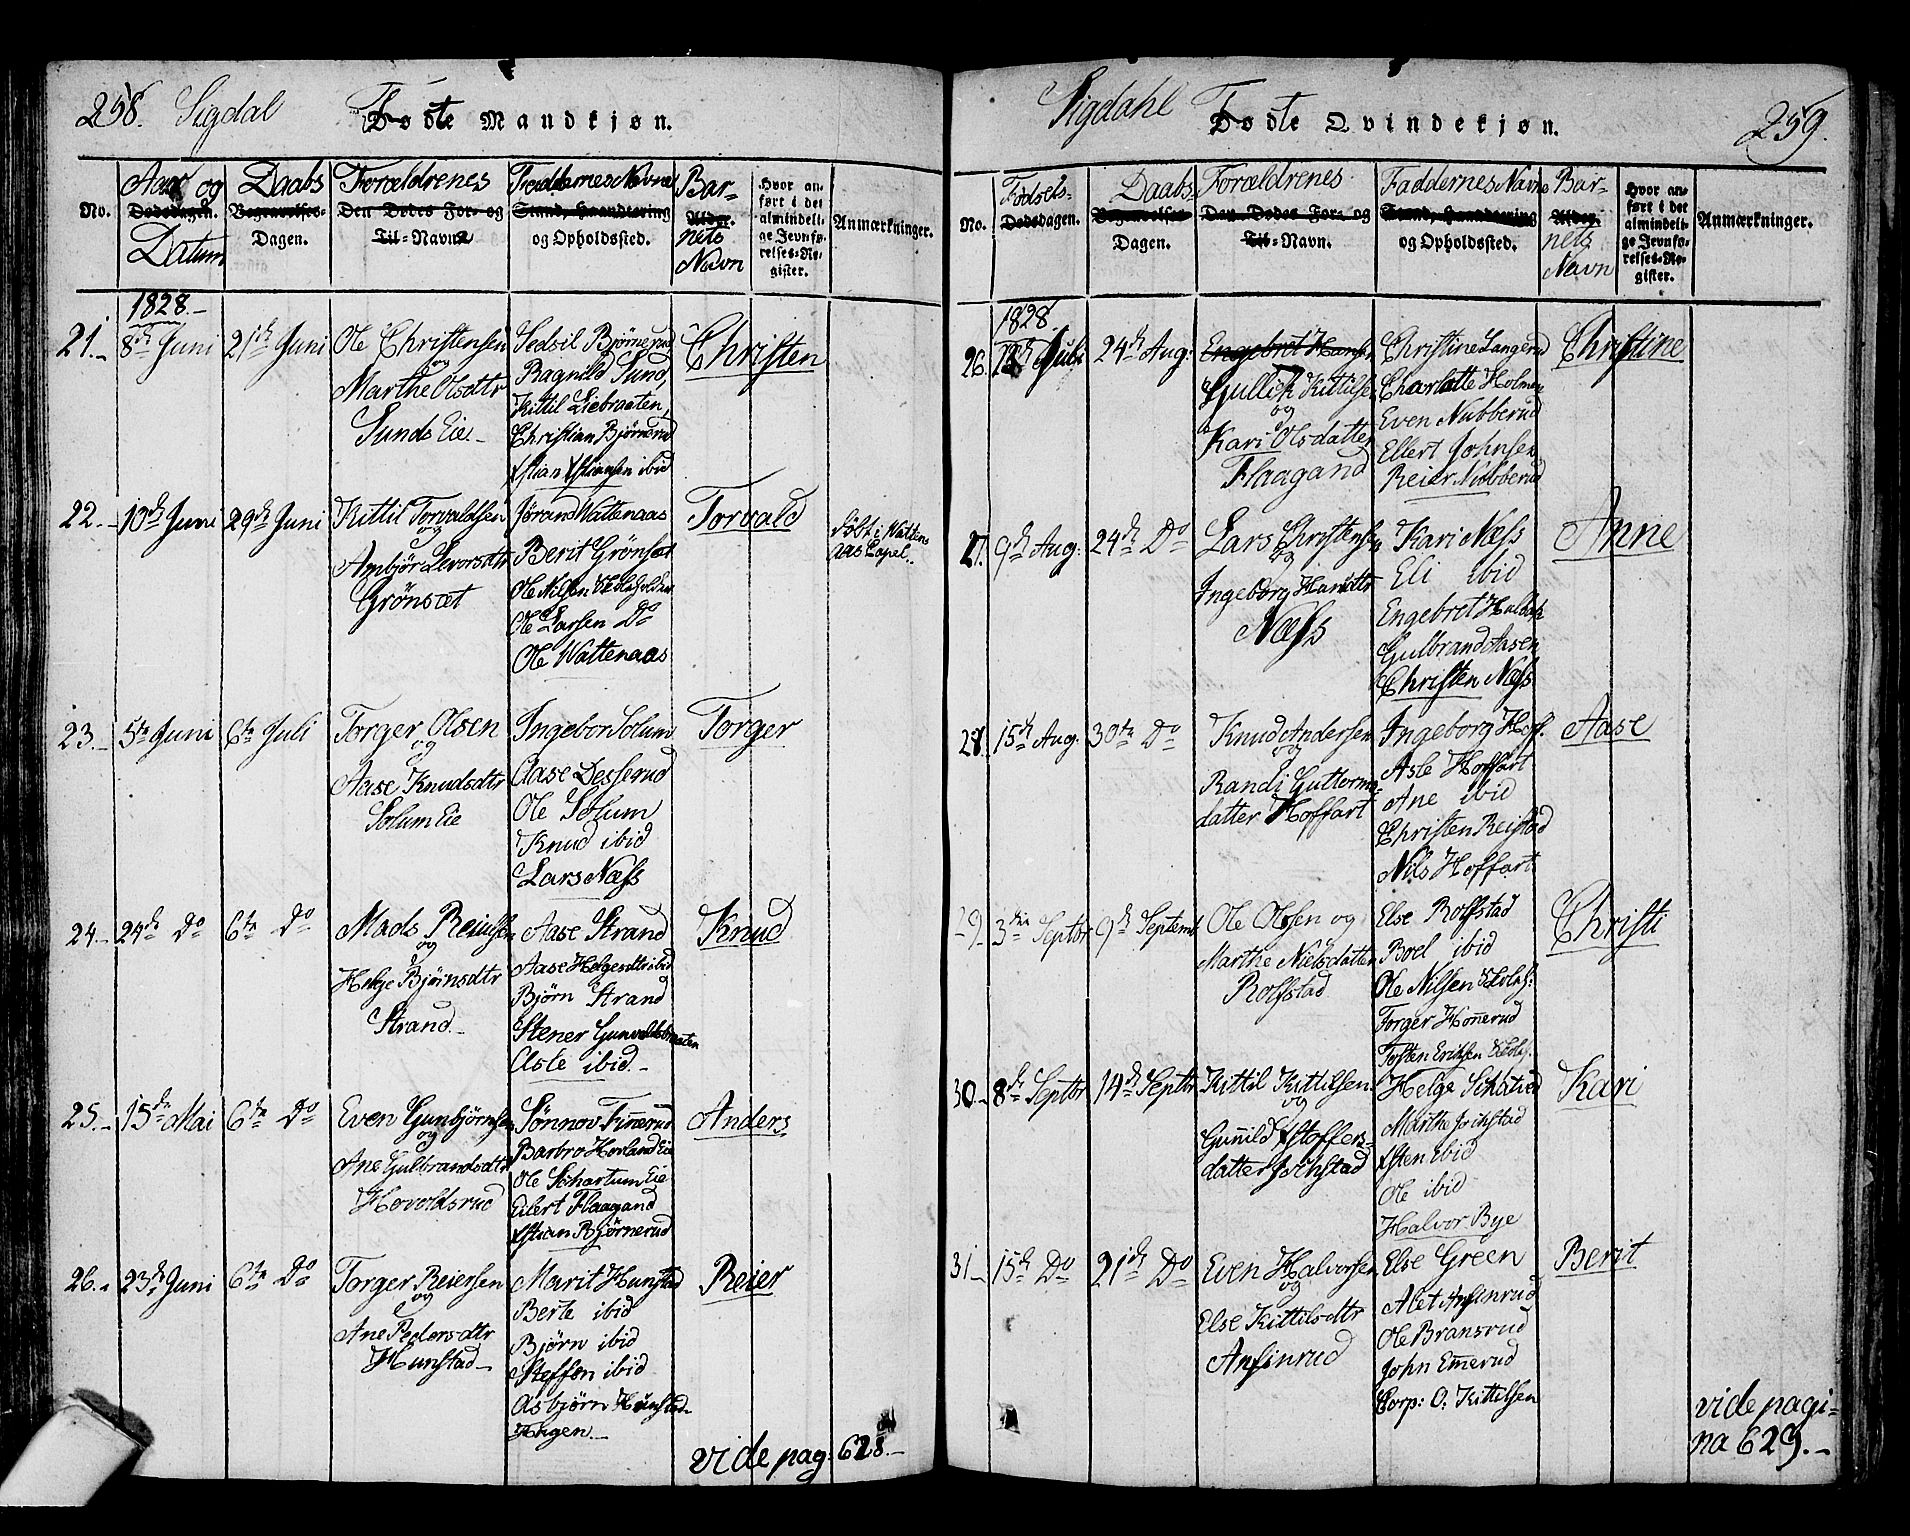 258. Sigdal
Fødte Mandkjøn.
No.
Aar og
Dødsdagen.
Datum
Daabs
Begravelses-
Dagen.
Forældrenes
Den Dødes For- og
Til-Navne
Faddernes Navne
Stand, Haandtering
og Opholdssted.
Bar-
Alder.
nets
Navn
Hvor an-
ført i det
almindeli-
ge Jevnfø-
relses-Re-
gister.
Anmærkninger.
1828.-
21.-
8de Juni
21de Juni
Ole Christensen
og
Marthe Olsdtr
Sunds Eie-
Sedsil Bjørnerud
Ragnild Sund,
Kittil Liebraaten,
Christian Bjørnerud
ibid
Christen
22.-
13de Juni
29de Juni
Kittil Torvaldsen
og
Ambjør Levorsdtr
Grønset
Jørand Wattenaas
Berit Grønset
Ole Nilsen
Ole Larsen Do
Ole Wattenaas
Torvald
døbt i Watten
aas Capel.
23.-
5te Juni
6te Juli
Torger Olsen
og
Aase Knudsdtr
Solum Eie
Ingebor Solum
Aase Desserud
Ole Solum
Knud ibid
Lars Næss
Torger
24.-
24de Do
6te Do
Mads Reiersen
og
Helge Bjørnsdtr
Strand.-
Aase Strand
Aase Helgesdtr ibid
Bjørn Strand
Stener Gunvaldsbraaten
Aste ibid.-
Knud
25.-
15de Mai
6te Do
Even Gunbjørnsen
og
Ane Gulbrandsdtr
Hovoldsrud
Sønnov Finnerud
Barbro Hovland Eie
Ole Schartum Eie
Eilert Flaagand
Xstian Bjørnerud
Anders
26.-
23de Juni
6te Do
Torger Reiersen
og
Ane Pedersdtr
Hunstad-
Marit Hunstad
Berte ibid
Bjørn ibid
Steffen ibid
Asbjørn Hunstad-
Hagen.-
Reier
vide pag: 628.-
Sigdahl
Fødte Qvindekjøn.
259.
No.
Fødsels-
Dødsdagen.
Daabs-
Begravelses
Dagen.
Forældrenes
Den Dødes For- og
Til-Navn.
Faddernes Navne
Stand, Haandtering
og Opholdssted.
Bar-
Alder.
nets
Navn
Hvor an-
ført i det
almindeli-
ge Jevnfø-
relses-Re-
gister.
Anmærkninger.
1828.
26.
Juli
24de Aug:
Engebret Hansen
Gullik Kittilsen
og
Kari Olsdatter
Flaagand
Christine Langerud
Charlotte Holmen
Even Nubberud
Ellert Johnsen
Reier Nubberud
Christine
27.
9de Aug:
24de Do
Lars Christensen
og
Ingeborg Hansdtr
Næss
Kari Næss
Eli ibid
Engebret Holbæk
Gulbrand Aasen
Christen Næss
Anne
28.
15de Aug:
30te Do
Knud Andersen
og
Randi Guttorms
datter Hoffart
Ingeborg Hoff.
Asle Hoffart
Ane ibid
Christen Reistad
Nils Hoffart
Aase
29.
3die Septbr
9de Septemb
Ole Olsen og
Marthe Nielsdatter
Rolfstad
Else Rolfstad
Boel ibid
Ole Nilsen Skoleh:
Torger Honnerud
Torsten Eriksen Skoleh.
Christi
30.-
8de Septbr
14de Septbr
Kittil Kittilsen
og
Gunild Xstoffers-
datter Jokstad
Helge
Marthe Jokstad
Xsten Ebid
Ole ibid
Halvor Bye
Kari
31.-
15de Do
21de Do
Even Halvorsen
og
Else Kittilsdtr
Anfinrud
Else Green
Alet Anfinrud
Ole Bransrud
John Emmerud
Corp: O: Kittilsen
Berit
vide pagi-
na 629.-